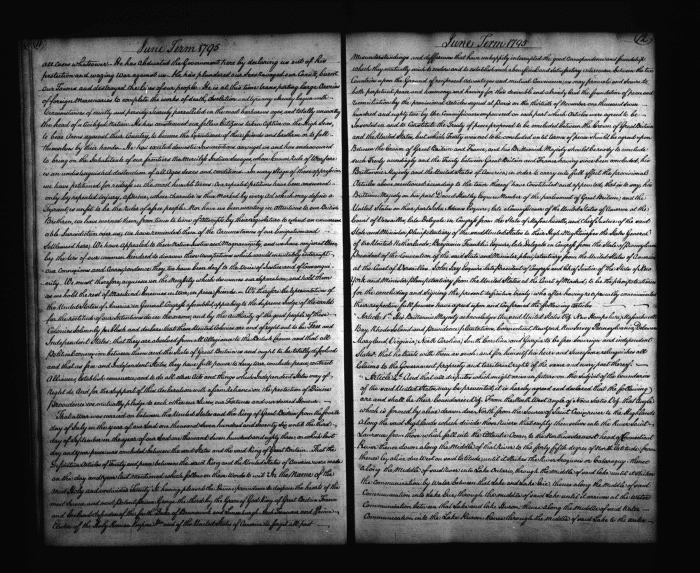 11
June Term 1795
all cases whatsoever. He has abdicated the Government here by declaring us out of his
protection and waging War against us. He has plundered our Seas, ravaged our Coasts, burnt
our Towns and destroyed the lives of our people. He is at this time transporting large Armies
of foreign Mercenaries to complete the works of death, desolation and tyranny already begun with
Circumstances of cruelty and perfidy scarcely parallelled in the most barbarous ages and totally unworthy
the head of a civilized Nation. He has constrained our fellow Citizens taken captive on the high Seas,
to bear Arms against their Country, to become the Executioners of their friends and brethren or to fall
themselves by their hands. He has excited domestic Insurrections amongst us and has endeavoured
to bring on the Inhabitants of our frontiers the merciless Indian Savages, whose known rule of Warfare
is an undistinguished destruction of all Ages sexes and conditions. In every stage of these oppressions
we have petitioned for redress in the most humble terms. Our repeated petitions have been answered
only by repeated injury. A Prince, whose Character is thus marked by every act which may define a
Tyrant is unfit to be the ruler of a free people. Nor have we been wanting in attentions to our British
Brethren, we have warned them from time to time of attempts by their Legislature to extend an unwarrant-
able Jurisdiction over us, we have reminded them of the Circumstances of our Emigration and
Settlement here. We have appealed to their Native Justice and Magnanimity, and we have conjured them
by the ties of our common kindred to disavow these usurpations which would inevitably interrupt
our Connexions and Correspondence. They too have been deaf to the voice of Justice and of Consangui-
nity. We must therefore acquiesce in the Necessity which denounces our separation and hold them
as we hold the rest of Mankind Enemies in War, in peace friends. We therefore the Representatives of
the United States of America in General Congress Assembled, appealing to the Supreme Judge of the world
for the rectitude of our Intentions do in the name, and by the authority of the good people of these
Colonies Solemnly publish and declare that these United Colonies are and of right ought to be Free and
Independent States, that they are absolved from all Allegiance to the British Crown and that all
Political connexion between them and the State of Great Britain is and ought to be totally dissolved
and that as free and Independent States they have full power to levy War, conclude peace, contract
Alliances, Establish commerce, and to do all other Acts and things which Independent States may of
Right do. And for the support of this declaration with a firm reliance on the protection of Divine
Providence we mutually pledge to each other our Lives, our Fortunes and our sacred Honour.
That a War was carried on between the United States and the King of Great Britain from the fourth
day of July in the year of our Lord one thousand seven hundred and seventy six until the third
day of September in the year of our Lord one thousand seven hundred and eighty three, on which last
day and year peace was concluded between the said States and the said King of Great Britain. That the
Definitive Articles of Treaty and peace between the said King and the United States of America were made
on the day and year last mentioned which follow in these Words to wit In the Name of the
most Holy and undivided Trinity. It having pleased the Divine providence to dispose the hearts of the
most Serene and most Potent Prince George the third by the Grace of God King of Great Britain France
and Ireland defender of the faith Duke of Brunswick and Lunenburgh Arch Treasurer and Prince
Elector of the Holy Roman Empire &c and of the United States of America to forget all past
12
June Term 1795
Misunderstandings and differences that have unhappily interrupted the good Correspondence and friendship
which they mutually wish to restore and to establish such a beneficial and satisfactory intercourse between the two
Countries upon the Ground of reciprocal advantages and mutual Convenience as may promote and secure to
both perpetual peace and harmony, and having for this desirable end already laid the foundation of peace and
reconciliation by the provisional articles signed at Paris on the thirtieth of November one thousand seven
hundred and eighty two by the Commissioners empowered on each part which Articles were agreed to be
inserted in and to Constitute the Treaty of peace proposed to be concluded between the Crown of Great Britain
and the United States, but which Treaty was not to be concluded until terms of peace should be agreed upon
Between the Crown of Great Britain and France, and his Britannic Majesty should be ready to conclude
such Treaty accordingly and the Treaty between Great Britain and France having since been concluded, his
Britannic Majesty and the United States of America, in order to carry into full effect the provisional
Articles above mentioned according to the tenor thereof have Constituted and appointed, that is to say, his
Britannic Majesty on his part David Hartley Esquire Member of the parliament of Great Britain; and the
United States on their part John Adams Esquire late a Commissioner of the United States of America at the
Court of Versailles, late Delegate in Congress from the State of Massachusetts, and Chief Justice of the said
State and Minister Plenipotentiary of the said United States to their High Mightinesses the States General
of the United Netherlands; Benjamin Franklin Esquire late Delegate in Congress from the State of Pennsylvania
President of the Convention of the said State and Minister plenipotentiary from the United States of America
at the Court of Versailles. John Jay Esquire late president of Congress and Chief Justice of the State of New
York and Minister Plenipotentiary from the United States at the Court of Madrid; to be the plenipotentiaries
for the concluding and signing the present definitive treaty who after having reciprocally communicated
their respective full powers have agreed upon and Confirmed the following Articles
Article 1st His Britannic Majesty acknowledges the said United States Viz New Hampshire, Massachusetts
Bay, Rhode Island and providence plantations, Connecticut New York New Jersey Pennsylvania Delaware
Maryland Virginia, North Carolina, South Carolina and Georgia to be free sovereign and independent
States; that he treats with them as such and for himself his heirs and Successors relinquishes all
Claims to the Government property and territorial rights of the same and every part thereof.
Article 2d And that all disputes which might arise in future on the subject of the boundaries
of the said United States may be prevented, it is hereby agreed and declared that the following
are and shall be their Boundaries Viz. From the North West angle of Nova Scotia Viz. that Angle
which is formed by a line drawn due North from the Source of Saint Croix river to the Highlands
Along the said Highlands which divide those Rivers that empty themselves into the River Saint
Lawrence from those which fall into the Atlantic Ocean, to the northwesternmost head of Connecticut
River, thence down along the Middle of that River to the forty fifth degree of North Latitude; from
thence by a line due West on said Latitude until it strikes the River Iroquois or Cataraquy; thence
Along the Middle of said River into Lake Ontario, through the middle of said Lake until it strikes
the Communication by Water between that Lake and Lake Erie; thence along the Middle of said
Communication into Lake Erie, through the middle of said Lake until it arrives at the Water
Communication between that Lake and Lake Huron thence along the Middle of said Water
Communication into the Lake Huron thence through the middle of said Lake to the Water